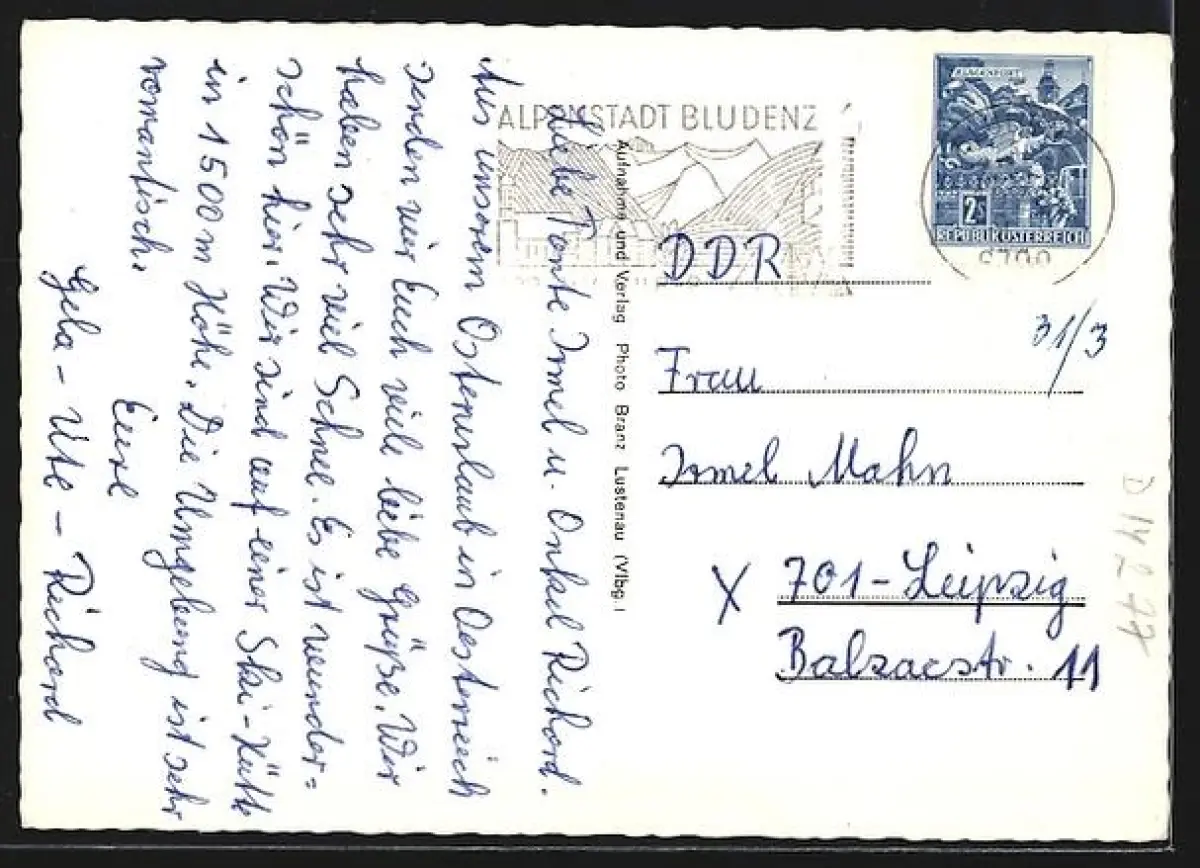 Liebe Tante Irmel u. Onkel Richard.
Aus unserem Osterurlaub in Oesterreich
senden wir Euch viele liebe Grüße. Wir
haben sehr viel Schnee. Es ist wunder=
schön hier. Wir sind auf einer Ski-Hütte
in 1500 m Höhe. Die Umgebung ist sehr
romantisch.
Eure
Gela - Ute - Richard
Aufnahme und Verlag Photo Branz Lustenau (Vlbg.)
ALPENSTADT BLUDENZ
KLAGENFURT
2S
REPUBLIK ÖSTERREICH
6700
DDR
31/3
Frau
Irmel Mahn
X 701-Leipzig
Balzacstr. 11
D 14 2 77